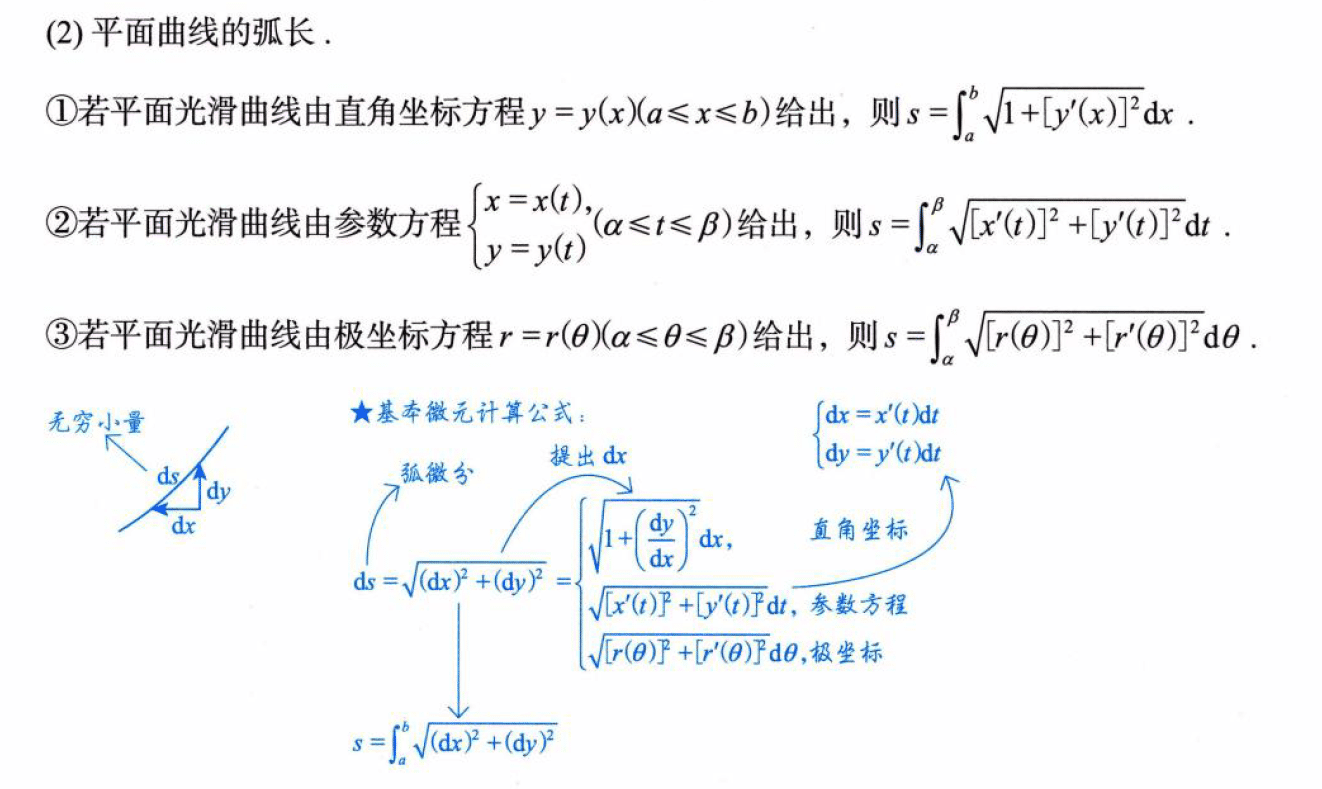 (2) 平面曲线的弧长.
①若平面光滑曲线由直角坐标方程 y = y(x)(a ≤ x ≤ b) 给出，则 s = ∫_a^b √(1+[y′(x)]²) dx .
②若平面光滑曲线由参数方程 { x = x(t), y = y(t) (α ≤ t ≤ β) 给出，则 s = ∫_α^β √([x′(t)]² + [y′(t)]²) dt .
③若平面光滑曲线由极坐标方程 r = r(θ)(α ≤ θ ≤ β) 给出，则 s = ∫_α^β √([r(θ)]² + [r′(θ)]²) dθ .
无穷小量
ds
dy
dx
★基本微元计算公式：
弧微分
提出 dx
{ dx = x′(t)dt
dy = y′(t)dt
ds = √((dx)² + (dy)²) = {
√(1+(dy/dx)²) dx, 直角坐标
√([x′(t)]² + [y′(t)]²) dt, 参数方程
√([r(θ)]² + [r′(θ)]²) dθ, 极坐标
s = ∫_a^b √((dx)² + (dy)²)